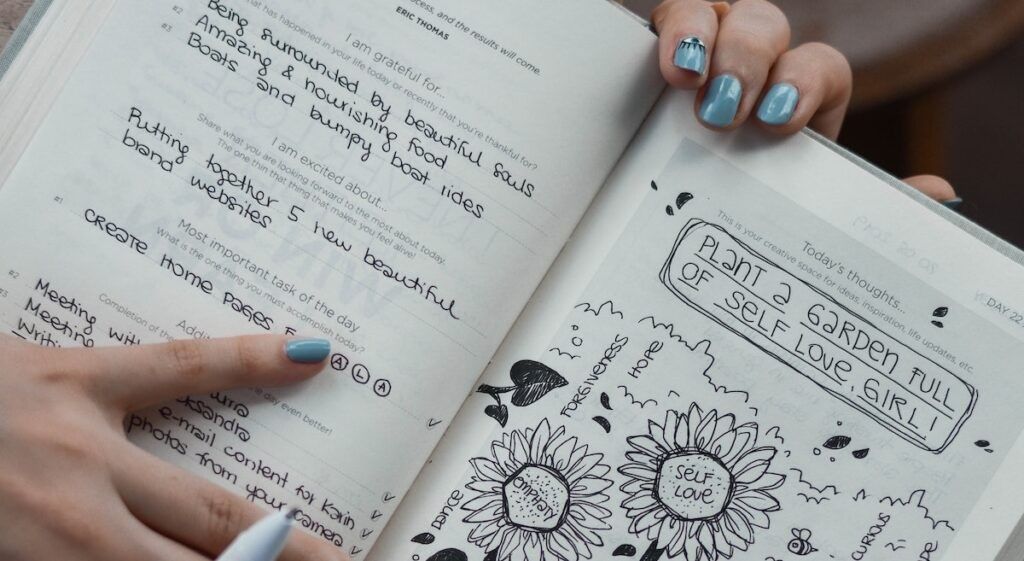 ocess, and the results will come.
ERIC THOMAS
I am grateful for...
has happened in your life today or recently that you're thankful for?
Being surrounded by beautiful souls
#2 Amazing & nourishing food
#3 Boats and bumpy boat rides
I am excited about...
Share what you are looking forward to the most about today.
The one thin that thing that makes you feel alive!
Putting together 5 new beautiful
brand websites
Most important task of the day
what is the one thing you must accomplish today?
#1 create Home pages
A L A
Completion of the
e day even better!
#2 Meeting with
#3 Meeting
ksandra
e-mail content for Karin
photos from your camera
DAY 22
Today's thoughts...
This is your creative space for ideas, inspiration, life updates, etc.
PLANT a GARDEN FULL
OF SELF LOVE, GIRL!
FORGIVENESS
HOPE
SELF
LOVE
DANCE
CURIOUS